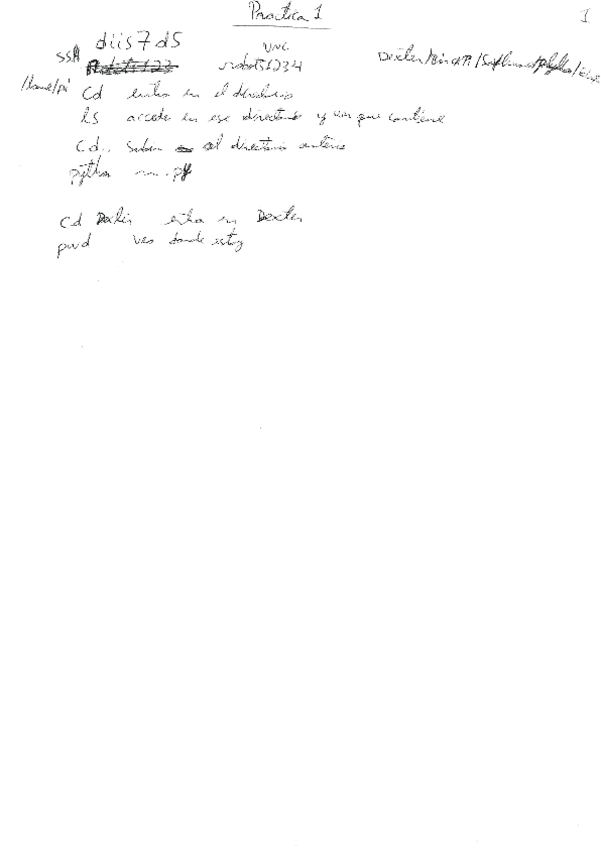 Practica 1
1
SSH diis7d5
VNC
robots1234
/home/pi
cd entra en el directorio
ls accede en ese directorio y ver que contiene
cd.. Suber al directorio anterior
python .py
cd Dexter entra en Dexter
pwd veo donde estoy